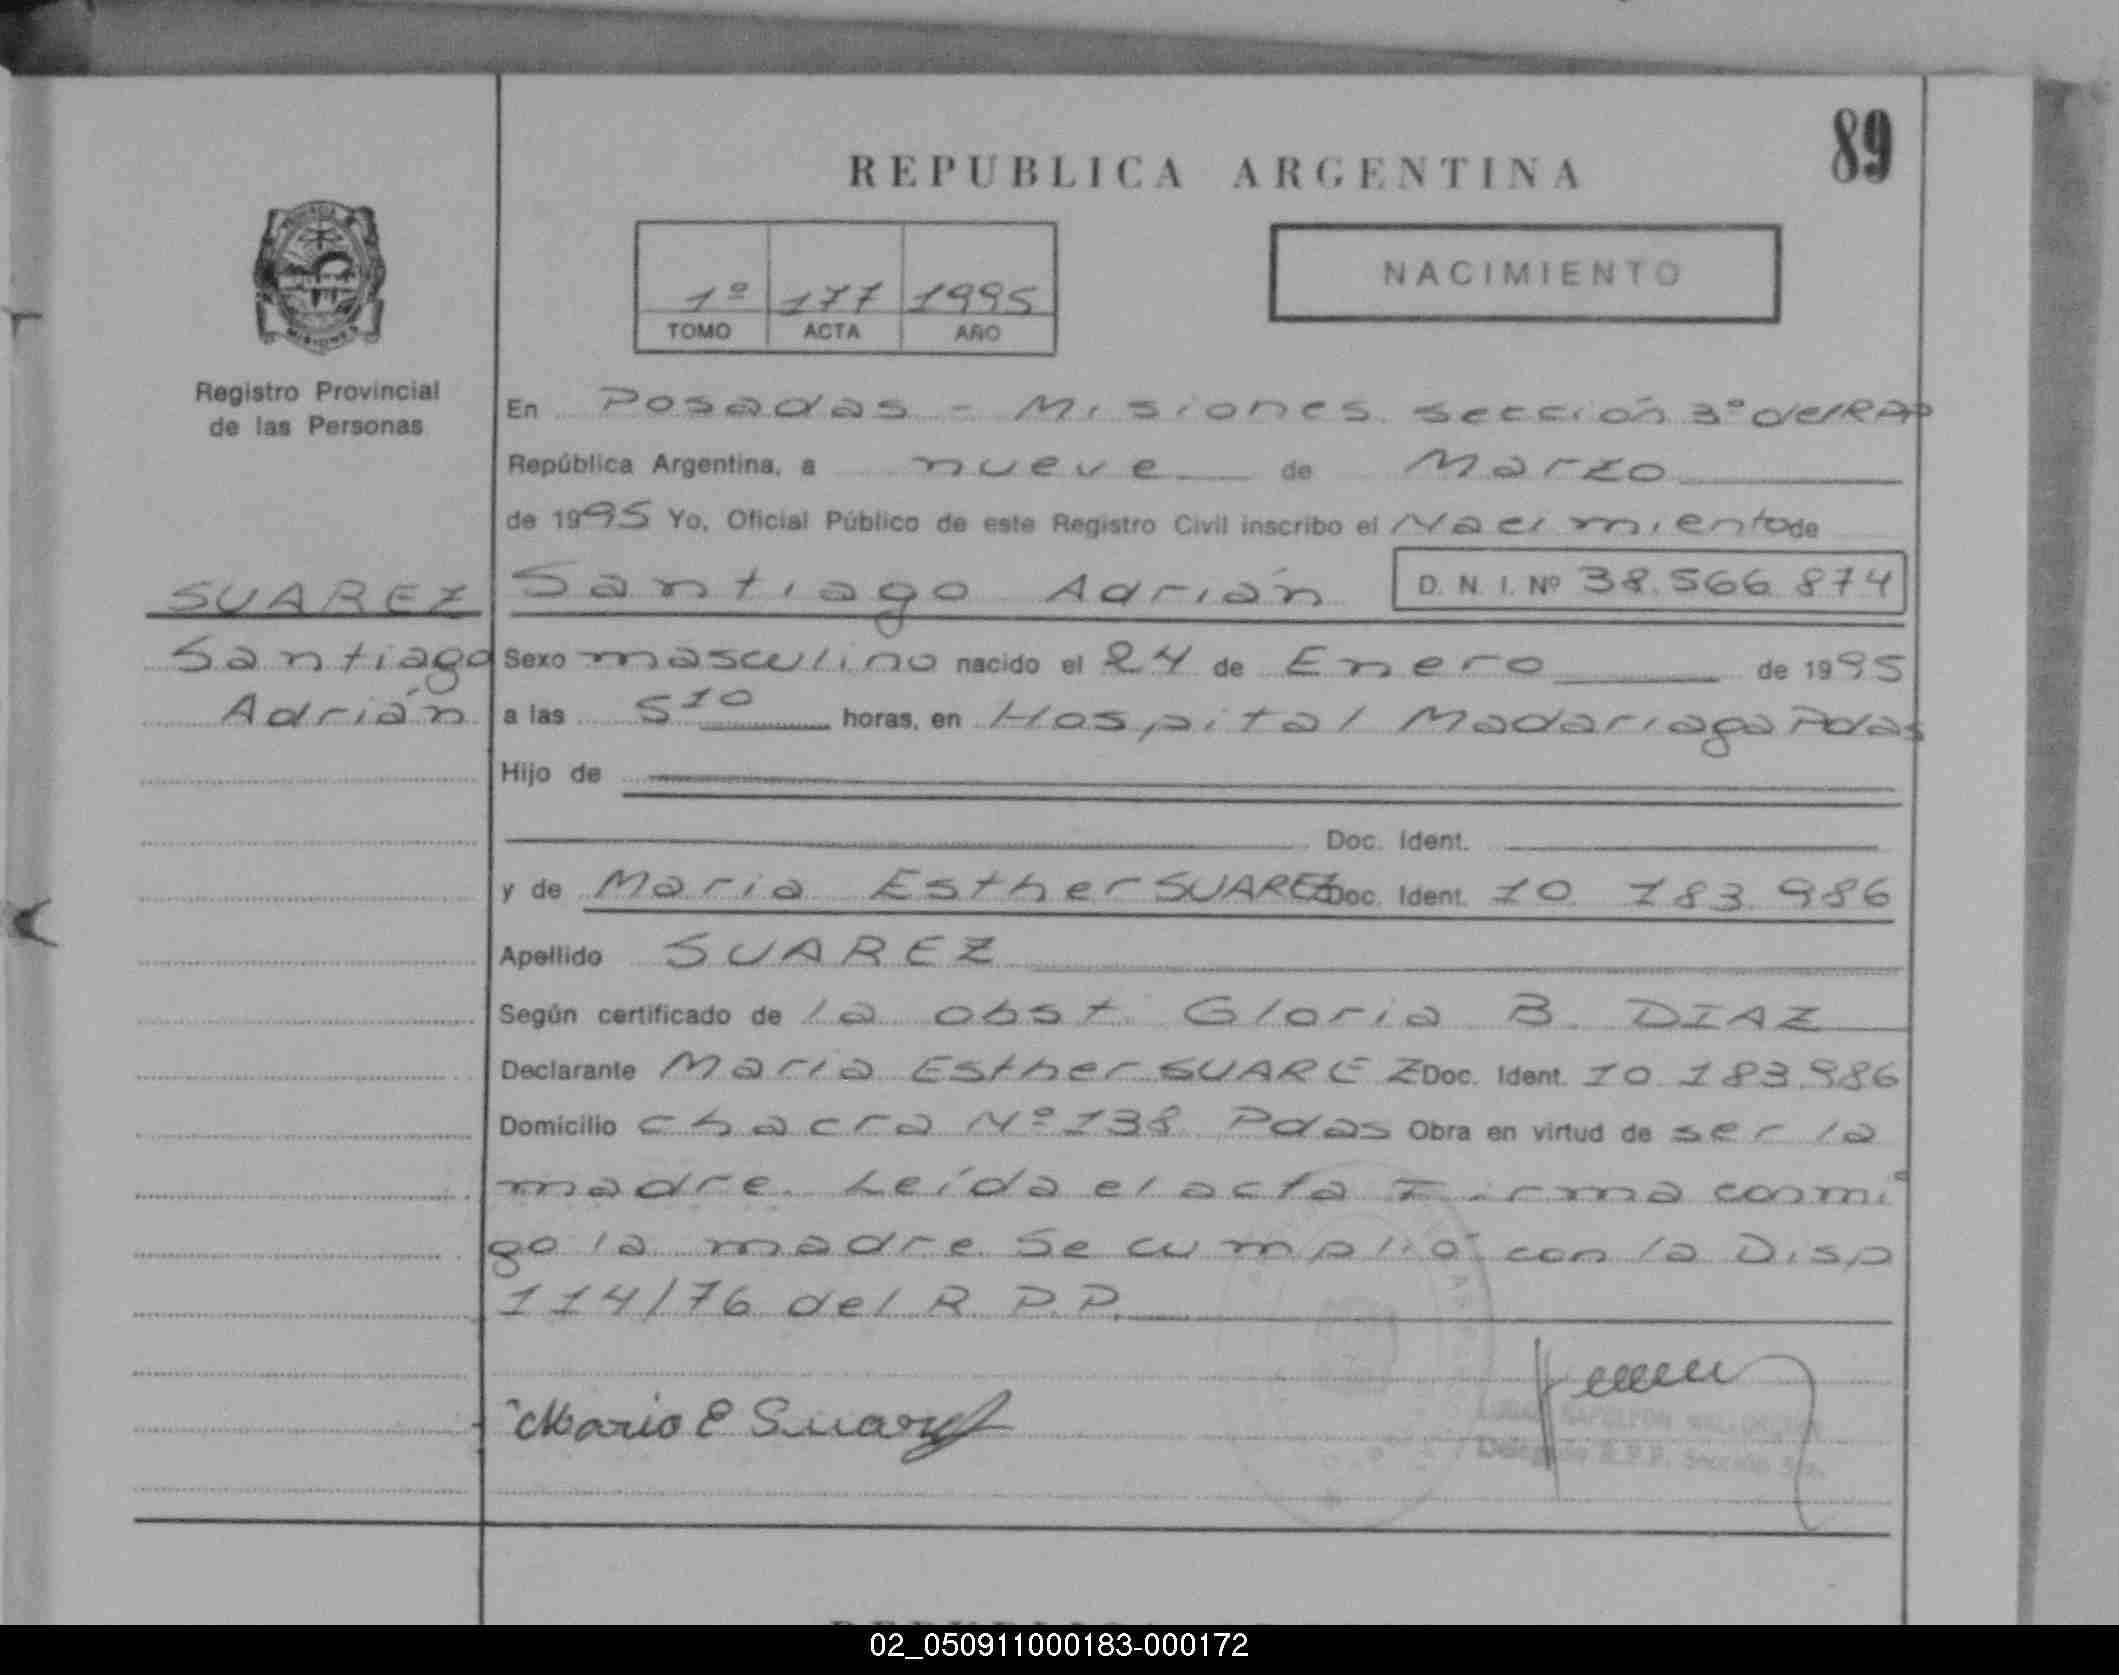 89
REPUBLICA ARGENTINA
1º 177 1995
TOMO ACTA AÑO
NACIMIENTO
MISIONES
Registro Provincial
de las Personas
En Posadas - Misiones. Sección 3º del RPP
República Argentina, a nueve de Marzo
de 1995 Yo, Oficial Público de este Registro Civil inscribo el Nacimiento de
SUAREZ Santiago Adrián D. N. I. Nº 38.566.874
Santiago Sexo masculino nacido el 24 de Enero de 1995
Adrián a las 5 10 horas, en Hospital Madariaga Pdas
Hijo de
Doc. Ident.
y de Maria Esther SUAREZ Doc. Ident. 10.183.986
Apellido SUAREZ
Según certificado de la obst. Gloria B. DIAZ
Declarante Maria Esther SUAREZ Doc. Ident. 10.183.986
Domicilio chacra Nº 138 Pdas Obra en virtud de ser la
madre. Leída el acta Firma conmi
go la madre. Se cumplió con la Disp
114/76 del R.P.P.
Maria E Suarez
Delegado R.P.P. Sección 3ra.
02_050911000183-000172